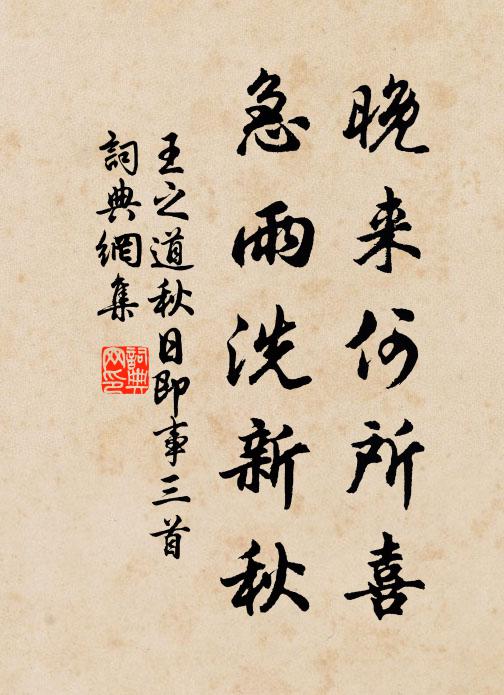 晚来何所喜
急雨洗新秋
王之道秋日即事三首
詞典網集
詞典网印